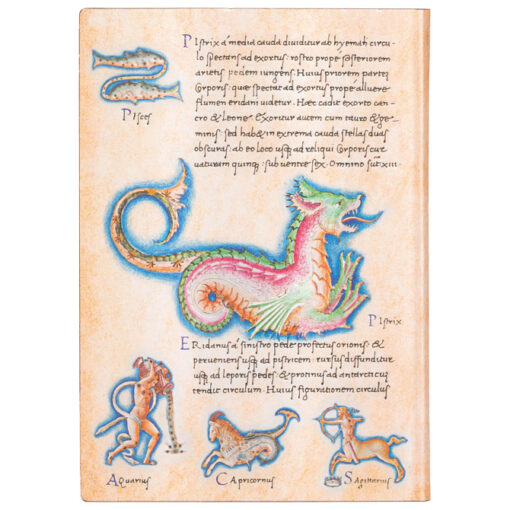 PIstrix á media cauda diuiditur ab hyemali circu-
lo spectans ad exortus: rostro prope posteriorem
arietis pedem iungens. Huius priorem partem
Corporis: quae spectat ad exortus prope alluere
flumen eridani uidetur. Haec cadit exorto can-
cro & Leone. Exoritur autem cum tauro & ge-
minis. sed habet in extrema cauda stellas duas
obscuras. ab eo loco usq ad reliqui Corporis cur
uaturam quinq: sub uentre sex. Omnino sut xiii.
PIsces
PIstrix
ERidanus á sinistro pede profectus orionis: &
perueniens usq ad pistricem. rursus diffunditur
usq ad leporis pedes: & protinus ad antarcticu
tendit circulum. Huius figurationem circulus
AQuarius
CApricornus
SAgittarius